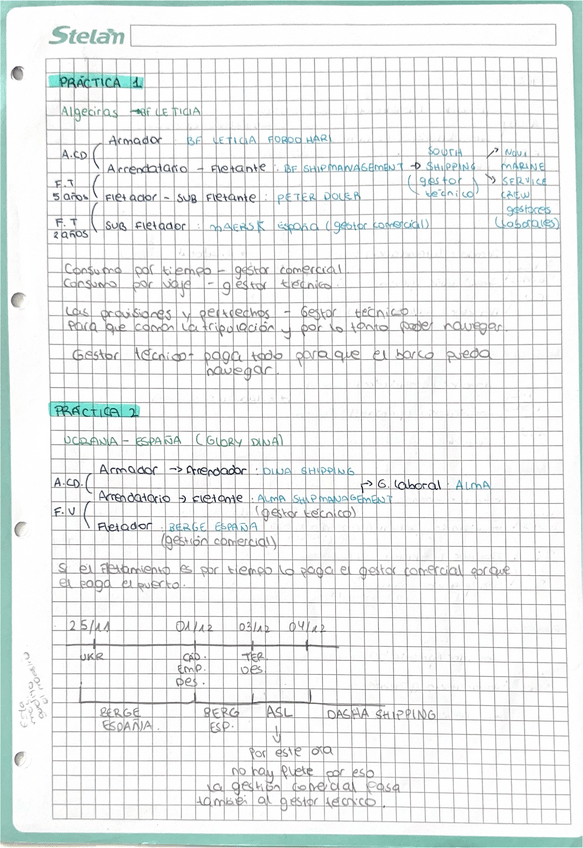 Stelan
PRÁCTICA 1
Algeciras → BF LETICIA
Armador BF LETICIA FOROOHARI
A.CD
Arrendatario - Fletante: BF SHIPMANAGEMENT → SOUTH SHIPPING (gestor técnico)
NOVA MARINE SERVICE CREW gestores (laborales)
F.T 5 años
Fletador - SUB Fletante: PETER DOLER
F.T 2 años
SUB Fletador: MAERSK España (gestor comercial)
Consumo por tiempo - gestor comercial
Consumo por viaje - gestor técnico.
Las provisiones y pertrechos - Gestor técnico.
Para que coman la tripulación y por lo tanto poder navegar.
Gestor técnico - paga todo para que el barco pueda
navegar.
PRÁCTICA 2
UCRANIA - ESPAÑA (GLORY DINA)
Armador → Arrendador: DINA SHIPPING
A.CD.
→ G. laboral: ALMA
Arrendatario → Fletante: ALMA SHIPMANAGEMENT
(gestor técnico)
F.V
Fletador: BERGE ESPAÑA
(gestión comercial)
Si el fletamiento es por tiempo lo paga el gestor comercial porque
el paga el puerto.
25/11 01/12 03/12 04/12
UKR CÁD. TER.
Emp. Des.
Des.
BERGE BERG ASL DASHA SHIPPING
ESPAÑA. ESP.
Por este día
no hay flete por eso
la gestión comercial pasa
también al gestor técnico.